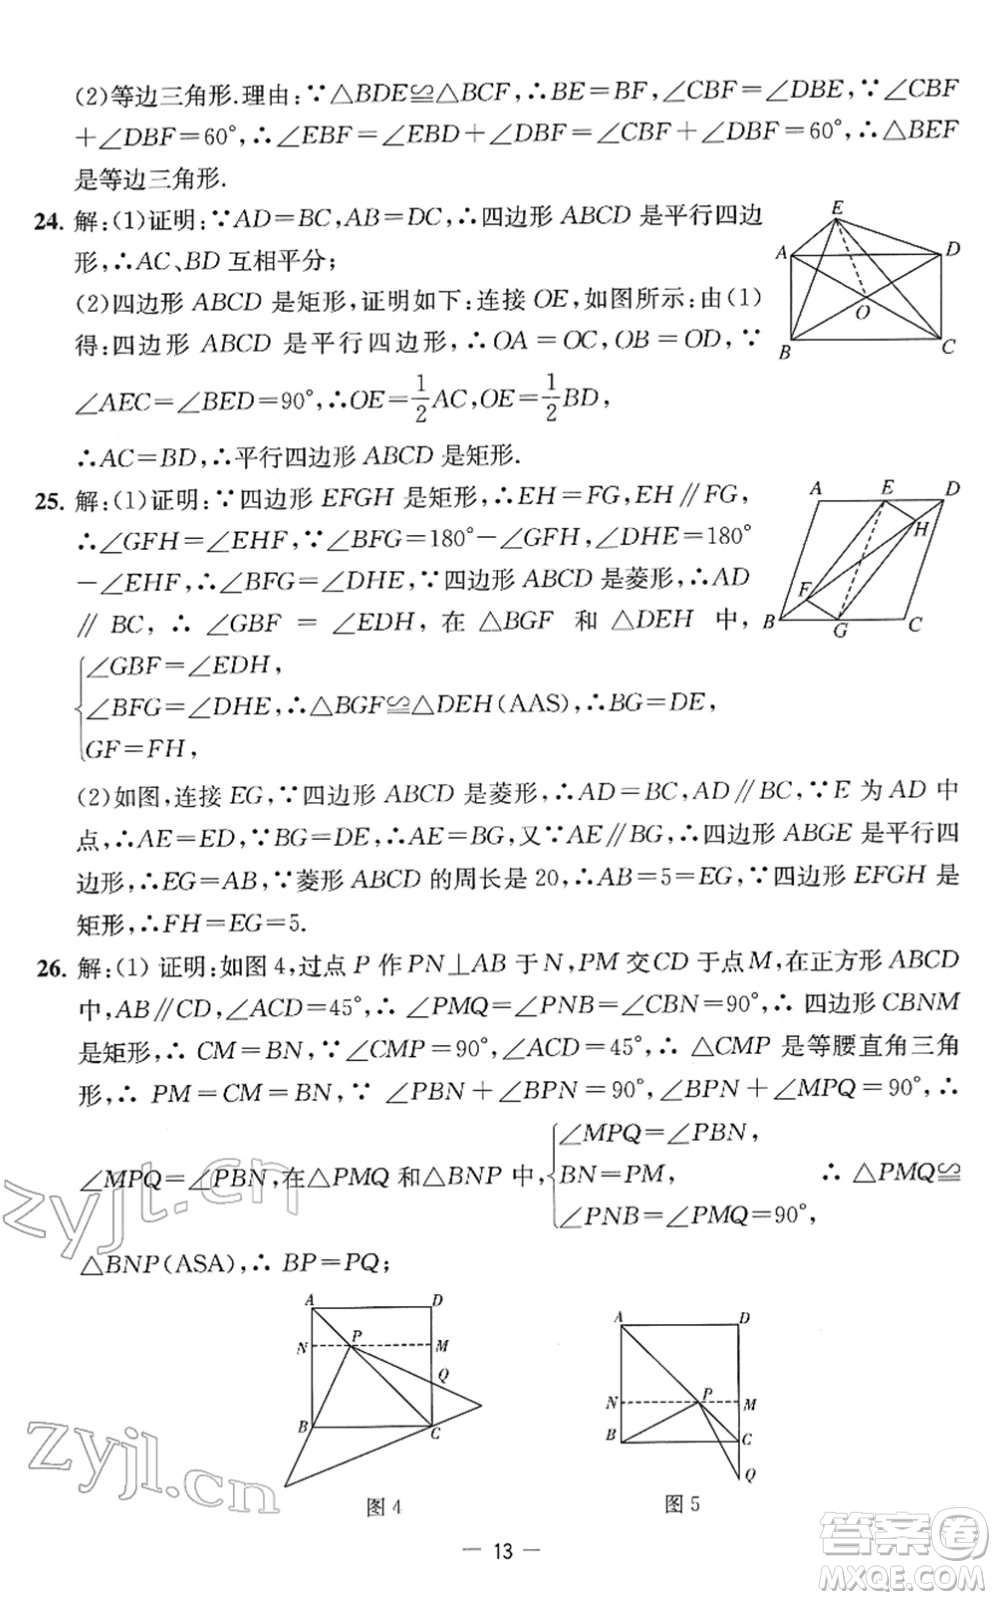 (2)等边三角形.理由:∵△BDE≌△BCF,∴BE=BF,∠CBF=∠DBE,∵∠CBF
+∠DBF=60°,∴∠EBF=∠EBD+∠DBF=∠CBF+∠DBF=60°,∴△BEF
是等边三角形.
24. 解:(1)证明:∵AD=BC,AB=DC,∴四边形 ABCD 是平行四边
形,∴AC、BD 互相平分;
(2)四边形 ABCD 是矩形,证明如下:连接 OE,如图所示:由(1)
得:四边形 ABCD 是平行四边形,∴OA=OC,OB=OD,∵
∠AEC=∠BED=90°,∴OE=1/2AC,OE=1/2BD,
∴AC=BD,∴平行四边形 ABCD 是矩形.
E
A
D
O
B
C
25. 解:(1)证明:∵四边形 EFGH 是矩形,∴EH=FG,EH∥FG,
∴∠GFH=∠EHF,∵∠BFG=180°-∠GFH,∠DHE=180°
-∠EHF,∴∠BFG=∠DHE,∵四边形 ABCD 是菱形,∴AD
∥BC,∴∠GBF=∠EDH,在△BGF 和△DEH 中,
∠GBF=∠EDH,
∠BFG=∠DHE,∴△BGF≌△DEH(AAS),∴BG=DE,
GF=FH,
A
E
D
H
F
B
G
C
(2)如图,连接 EG,∵四边形 ABCD 是菱形,∴AD=BC,AD∥BC,∵E 为 AD 中
点,∴AE=ED,∵BG=DE,∴AE=BG,又∵AE∥BG,∴四边形 ABGE 是平行四
边形,∴EG=AB,∵菱形 ABCD 的周长是 20,∴AB=5=EG,∵四边形 EFGH 是
矩形,∴FH=EG=5.
26. 解:(1) 证明:如图 4,过点 P 作 PN⊥AB 于 N,PM 交 CD 于点 M,在正方形 ABCD
中,AB∥CD,∠ACD=45°,∴∠PMQ=∠PNB=∠CBN=90°,∴四边形 CBNM
是矩形,∴CM=BN,∵∠CMP=90°,∠ACD=45°,∴△CMP 是等腰直角三角
形,∴PM=CM=BN,∵∠PBN+∠BPN=90°,∠BPN+∠MPQ=90°,∴
∠MPQ=∠PBN,
∠MPQ=∠PBN,在△PMQ 和△BNP 中,BN=PM, ∴△PMQ≌
∠PNB=∠PMQ=90°,
△BNP(ASA),∴BP=PQ;
A
D
P
N
M
Q
B
C
图 4
A
D
P
N
M
B
C
Q
图 5
— 13 —
zyjl.cn
zyjl.cn
答案卷
MXQE.COM